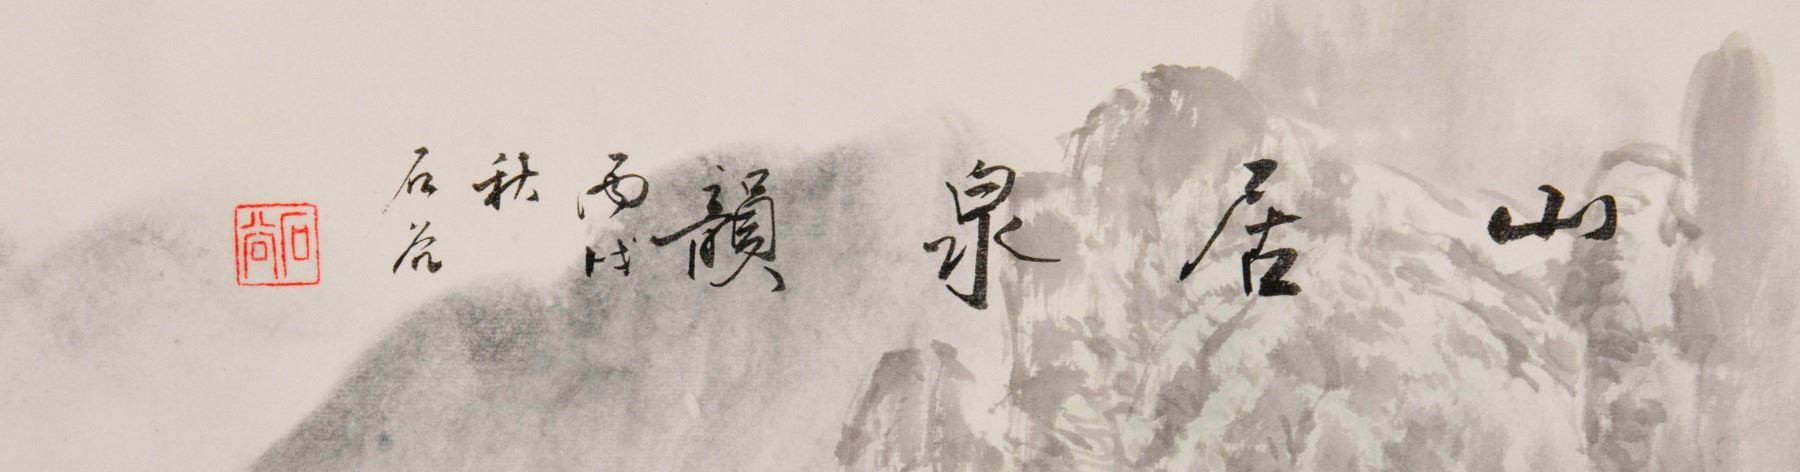 山居泉韻
丙戌
秋
石谷
石谷